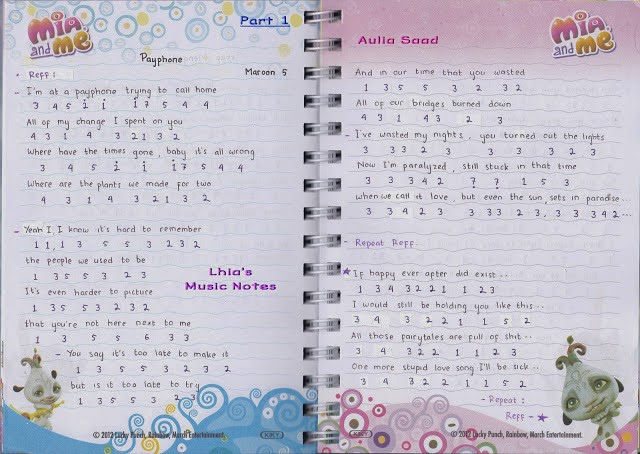 Mia and me
Part 1
Payphone
Maroon 5
• Reff :
- I'm at a payphone trying to call home
3 4 5 2̇ 1̇ 1̇ 7 5 4 4
All of my change I spent on you
4 3 1 4 3 2 1 3 2
Where have the times gone, baby it's all wrong
3 4 5 2̇ 1̇ 1̇ 7 5 4 4
Where are the plants we made for two
4 3 1 4 3 2 1 3 2
- Yeah I, I know it's hard to remember
1 1, 1 3 5 5 3 2 3 2
the people we used to be
1 3 5 5 3 2 3
It's even harder to picture
1 3 5 5 3 2 3 2
that you're not here next to me
1 3 5 5 6 3 3
- You say it's too late to make it
1 3 5 5 3 2 3 2
but is it too late to try
1 3 5 5 3 2 3
Lhia's
Music Notes
© 2012 Lucky Punch, Rainbow, March Entertainment.
KIKY
Aulia Saad
Mia and me
And in our time that you wasted
1 3 5 5 3 2 3 2
All of our bridges burned down
4 3 1 4 3 2 3
- I've wasted my nights, you turned out the lights
3 3 3 2 3 3 3 3 2 3
Now I'm paralyzed, still stuck in that time
3 3 3 4 2 7 7 1 5 3
when we call it love, but even the sun, sets in paradise...
3 3 4 2 3 3 3 3 2 3, 3 3 3 4 2 ...
- Repeat Reff.
★ If happy ever after did exist ..
1 3 4 3 2 2 1 1 2 3
I would still be holding you like this ...
3 4 3 2 2 1 1 5 2
All those fairytales are full of shit ..
3 4 3 2 2 1 1 2 3
One more stupid love song I'll be sick ..
3 4 3 2 2 1 1 5 2
- Repeat :
Reff - ★
© 2012 Lucky Punch, Rainbow, March Entertainment.
KIKY